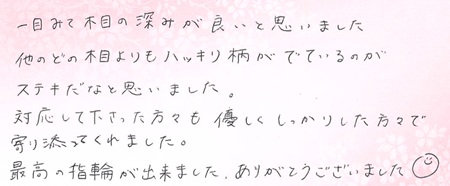 一目みて木目の深みが良いと思いました
他のどの木目よりもハッキリ柄がでているのが
ステキだなと思いました。
対応して下さった方々も優しくしっかりした方々で
寄り添ってくれました。
最高の指輪が出来ました、ありがとうございました